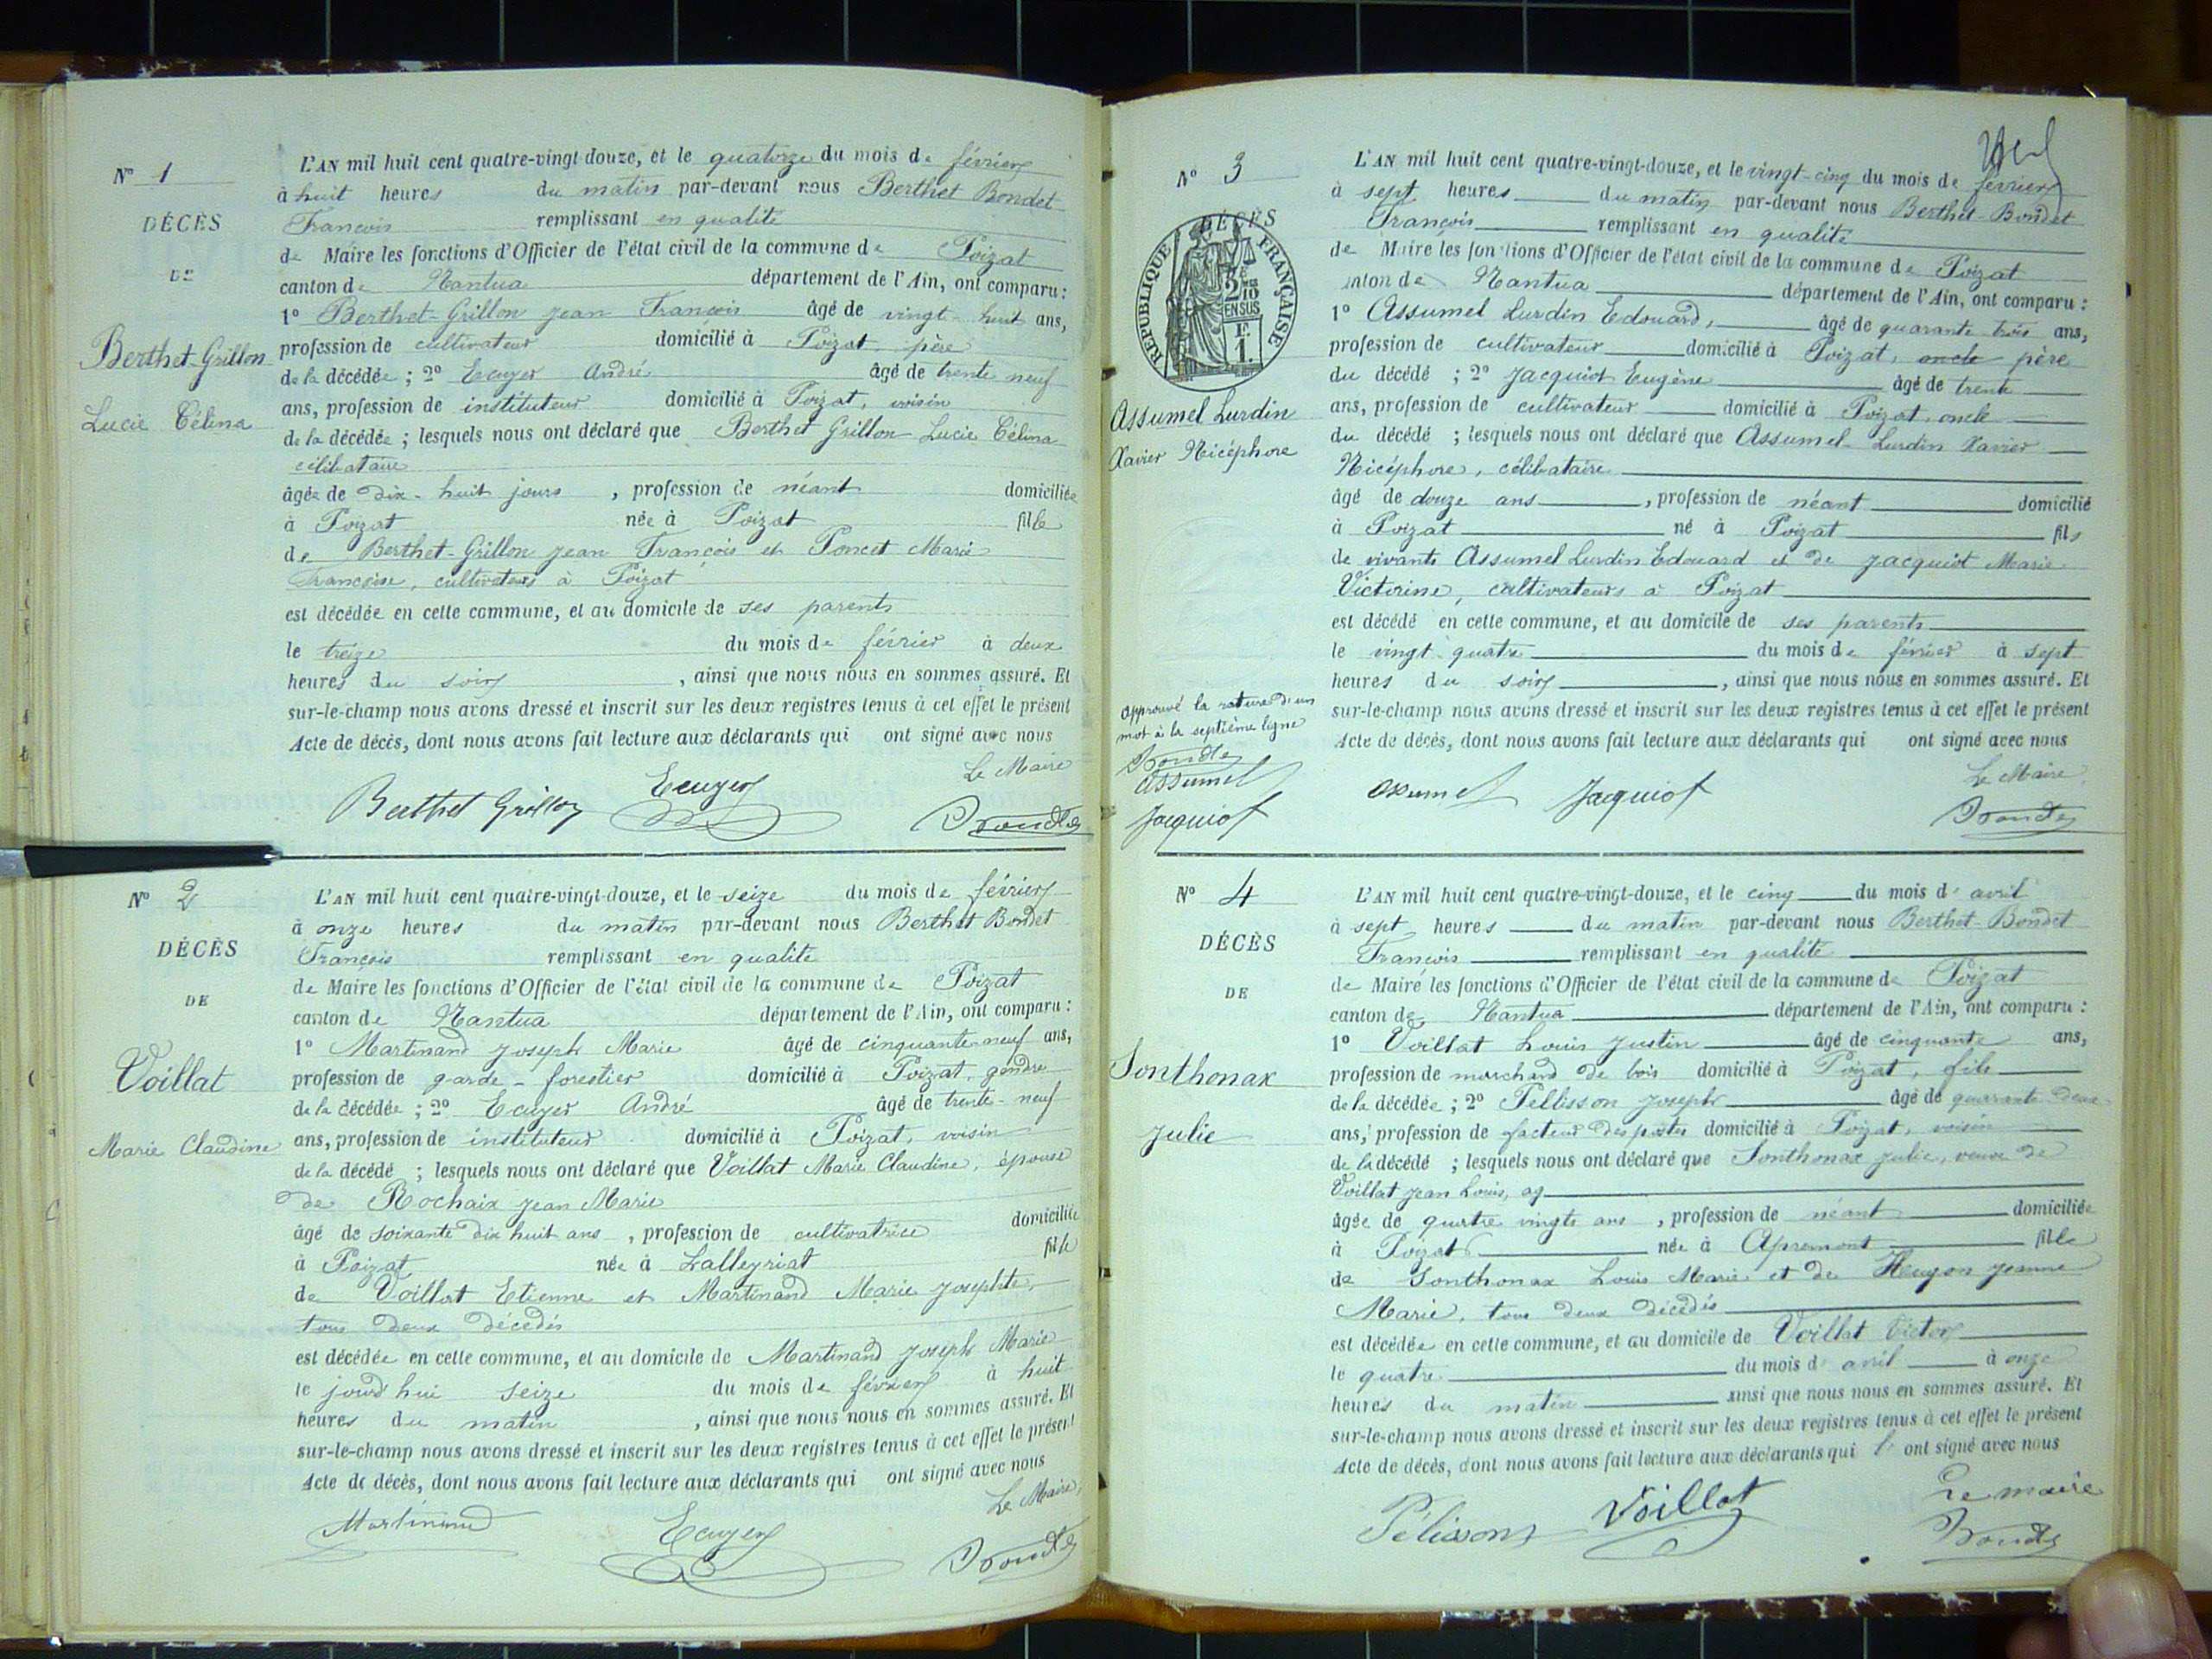 N° 1
DÉCÈS
DE
Berthet-Grillon
Lucie Célina
L'AN mil huit cent quatre-vingt-douze, et le quatorze du mois de février
à huit heures du matin par-devant nous Berthet Bondet
François remplissant en qualité
de Maire les fonctions d'Officier de l'état civil de la commune de Poizat
canton de Nantua département de l'Ain, ont comparu :
1° Berthet-Grillon Jean François âgé de vingt-huit ans,
profession de cultivateur domicilié à Poizat, père
de la décédée ; 2° Ecuyer André âgé de trente neuf
ans, profession de instituteur domicilié à Poizat, voisin
de la décédée ; lesquels nous ont déclaré que Berthet Grillon Lucie Célina
célibataire
âgée de dix-huit jours , profession de néant domiciliée
à Poizat née à Poizat fille
de Berthet-Grillon Jean François et Poncet Marie
Françoise, cultivateurs à Poizat
est décédée en cette commune, et au domicile de ses parents
le treize du mois de février à deux
heures du soir , ainsi que nous nous en sommes assuré. Et
sur-le-champ nous avons dressé et inscrit sur les deux registres tenus à cet effet le présent
Acte de décès, dont nous avons fait lecture aux déclarants qui ont signé avec nous
Le Maire
Berthet Grillon Ecuyer Bondet
N° 2
DÉCÈS
DE
Voillat
Marie Claudine
L'AN mil huit cent quatre-vingt-douze, et le seize du mois de février
à onze heures du matin par-devant nous Berthet Bondet
François remplissant en qualité
de Maire les fonctions d'Officier de l'état civil de la commune de Poizat
canton de Nantua département de l'Ain, ont comparu :
1° Martinand Joseph Marie âgé de cinquante-neuf ans,
profession de garde-forestier domicilié à Poizat, gendre
de la décédée ; 2° Ecuyer André âgé de trente-neuf
ans, profession de instituteur domicilié à Poizat, voisin
de la décédé ; lesquels nous ont déclaré que Voillat Marie Claudine, épouse
de Rochaix Jean Marie
âgé de soixante dix huit ans , profession de cultivatrice domiciliée
à Poizat née à Lalleyriat fille
de Voillat Etienne et Martinand Marie Josephte,
tous deux décédés
est décédée en cette commune, et au domicile de Martinand Joseph Marie
le jourd'hui seize du mois de février à huit
heures du matin , ainsi que nous nous en sommes assuré. Et
sur-le-champ nous avons dressé et inscrit sur les deux registres tenus à cet effet le présent
Acte de décès, dont nous avons fait lecture aux déclarants qui ont signé avec nous
Le Maire,
Martinand Ecuyer Bondet
N° 3
DÉCÈS
RÉPUBLIQUE FRANÇAISE
2/10
EN SUS
1F
1.
Assumel Lurdin
Xavier Nicéphore
approuvé la rature d'un
mot à la septième ligne
Bondet
Assumel
Jacquiot
L'AN mil huit cent quatre-vingt-douze, et le vingt-cinq du mois de février
à sept heures du matin par-devant nous Berthet-Bondet
François remplissant en qualité
de Maire les fonctions d'Officier de l'état civil de la commune de Poizat
canton de Nantua département de l'Ain, ont comparu :
1° Assumel Lurdin Edouard, âgé de quarante trois ans,
profession de cultivateur domicilié à Poizat, oncle père
du décédé ; 2° Jacquiot Eugène âgé de trente
ans, profession de cultivateur domicilié à Poizat, oncle
du décédé ; lesquels nous ont déclaré que Assumel-Lurdin Xavier
Nicéphore, célibataire
âgé de douze ans , profession de néant domicilié
à Poizat né à Poizat fils
de vivants Assumel Lurdin Edouard et de Jacquiot Marie
Victorine, cultivateurs à Poizat
est décédé en cette commune, et au domicile de ses parents
le vingt-quatre du mois de février à sept
heures du soir , ainsi que nous nous en sommes assuré. Et
sur-le-champ nous avons dressé et inscrit sur les deux registres tenus à cet effet le présent
Acte de décès, dont nous avons fait lecture aux déclarants qui ont signé avec nous
Le Maire
Assumel Jacquiot Bondet
N° 4
DÉCÈS
DE
Sonthonax
Julie
L'AN mil huit cent quatre-vingt-douze, et le cinq du mois d'avril
à sept heures du matin par-devant nous Berthet-Bondet
François remplissant en qualité
de Maire les fonctions d'Officier de l'état civil de la commune de Poizat
canton de Nantua département de l'Ain, ont comparu :
1° Voillat Louis Justin âgé de cinquante ans,
profession de marchand de bois domicilié à Poizat, fils
de la décédée ; 2° Pellisson Joseph âgé de quarante deux
ans, profession de facteur des postes domicilié à Poizat, voisin
de la décédé ; lesquels nous ont déclaré que Sonthonax Julie, veuve de
Voillat Jean Louis, ag
âgée de quatre vingts ans , profession de néant domiciliée
à Poizat née à Apremont fille
de Sonthonax Louis Marie et de Hugon Jeanne
Marie, tous deux décédés
est décédée en cette commune, et au domicile de Voillat Victor
le quatre du mois d'avril à onze
heures du matin ainsi que nous nous en sommes assuré. Et
sur-le-champ nous avons dressé et inscrit sur les deux registres tenus à cet effet le présent
Acte de décès, dont nous avons fait lecture aux déclarants qui ont signé avec nous
Le maire
Pélisson Voillat Bondet